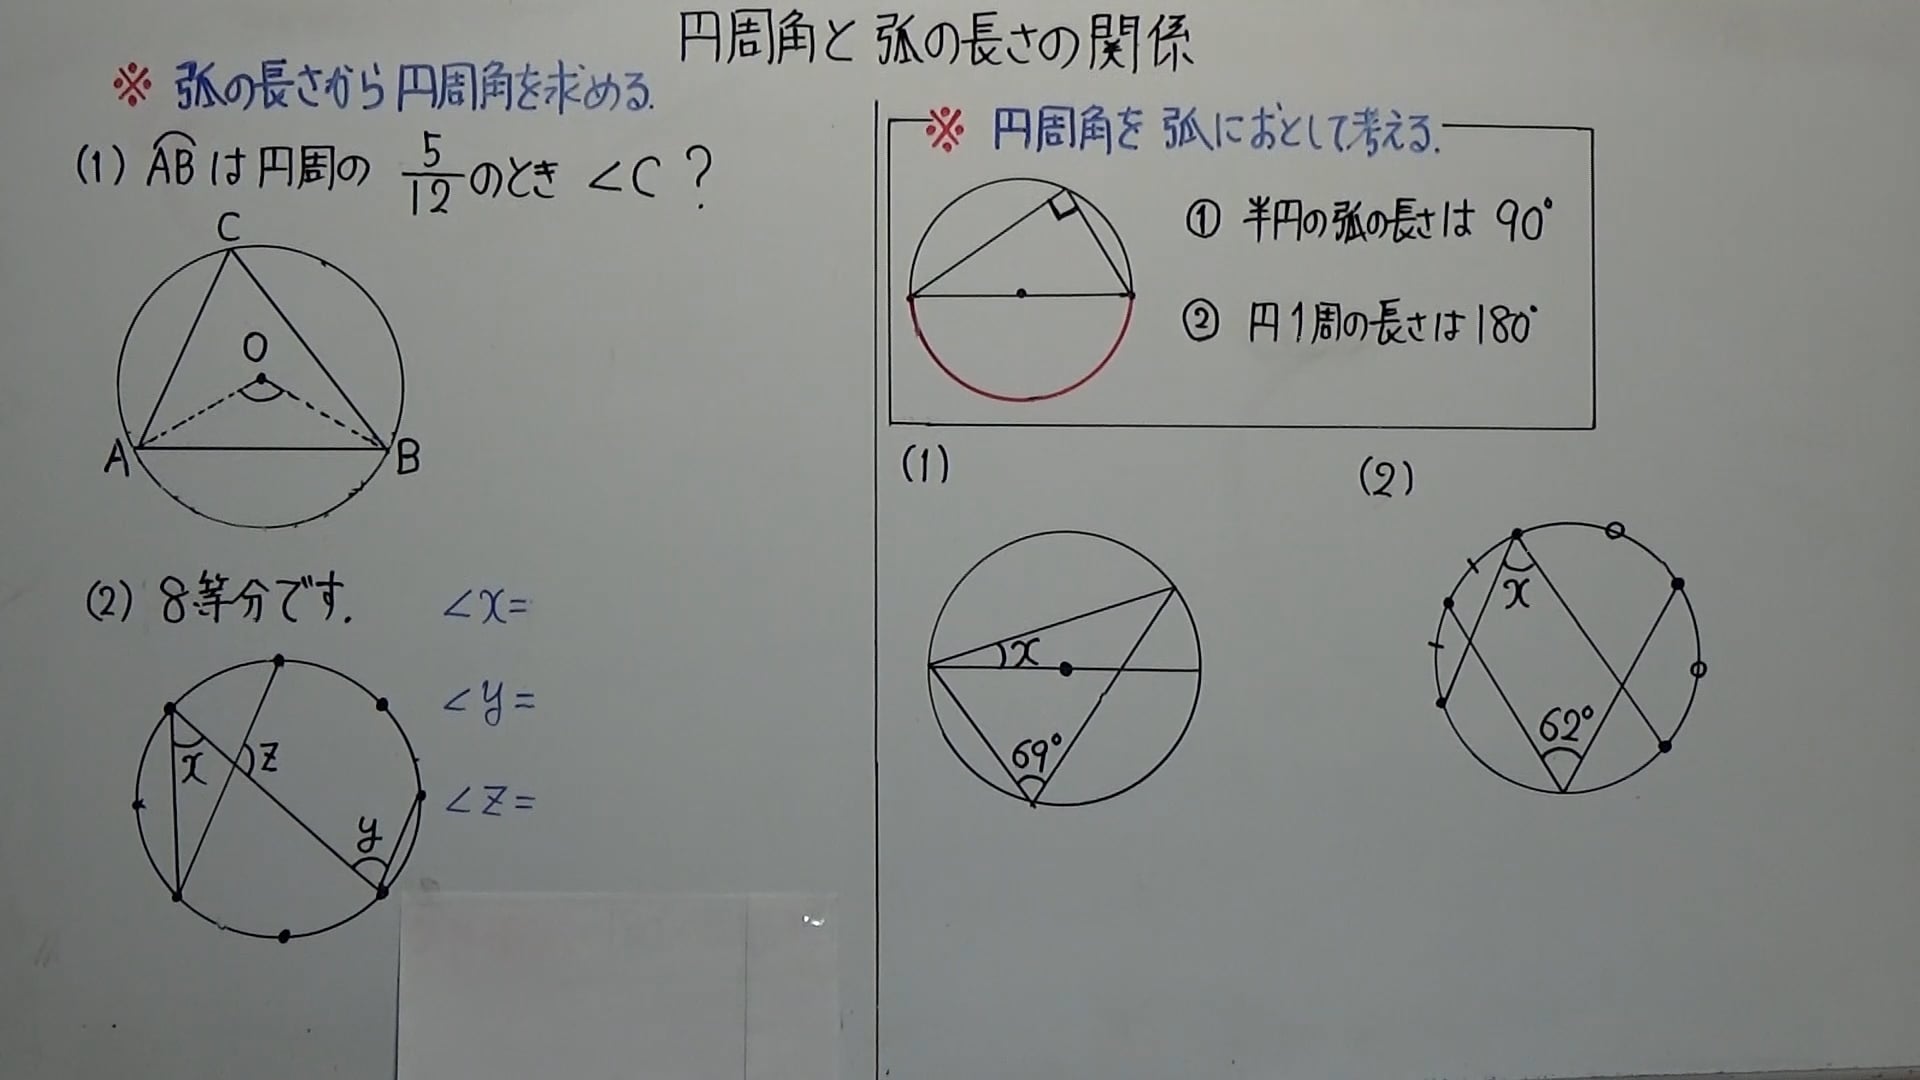 円周角と弧の長さの関係
※ 弧の長さから円周角を求める.
(1) AB は円周の 5/12 のとき ∠C ?
C
O
A
B
(2) 8等分です.
∠x=
∠y=
∠z=
x
z
y
※ 円周角を弧におとして考える.
① 半円の弧の長さは 90°
② 円1周の長さは180°
(1)
x
69°
(2)
x
62°